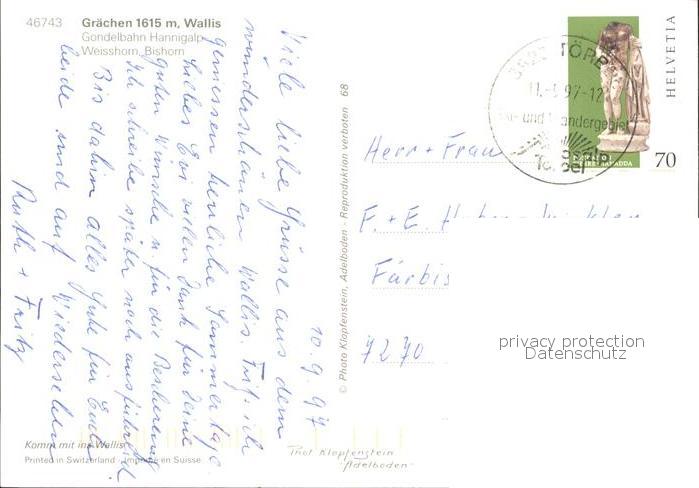 46743 Grächen 1615 m, Wallis
Gondelbahn Hannigalp
Weisshorn, Bishorn
10.9.97
Viele liebe Grüsse aus dem
wunderschönen Wallis. Frf. ich
geniessen herrliche Sommertage.
Liebes Evi vielen Dank für Deine
guten Wünsche u. für die Bescherung
Ich schreibe später noch ausführlich.
Bis dahin alles Gute für Euch
beide und auf Wiedersehen
Ruth + Fritz
Komm mit ins Wallis
Printed in Switzerland - Imprimé en Suisse
© Photo Klopfenstein, Adelboden - Reproduktion verboten 68
Phot Klopfenstein
"Adelboden"
HELVETIA
70
TÖRBEL
97-12
und Wandergebiet
Törbel
Herr + Frau
F. + E.
Färbis
7270
privacy protection
Datenschutz